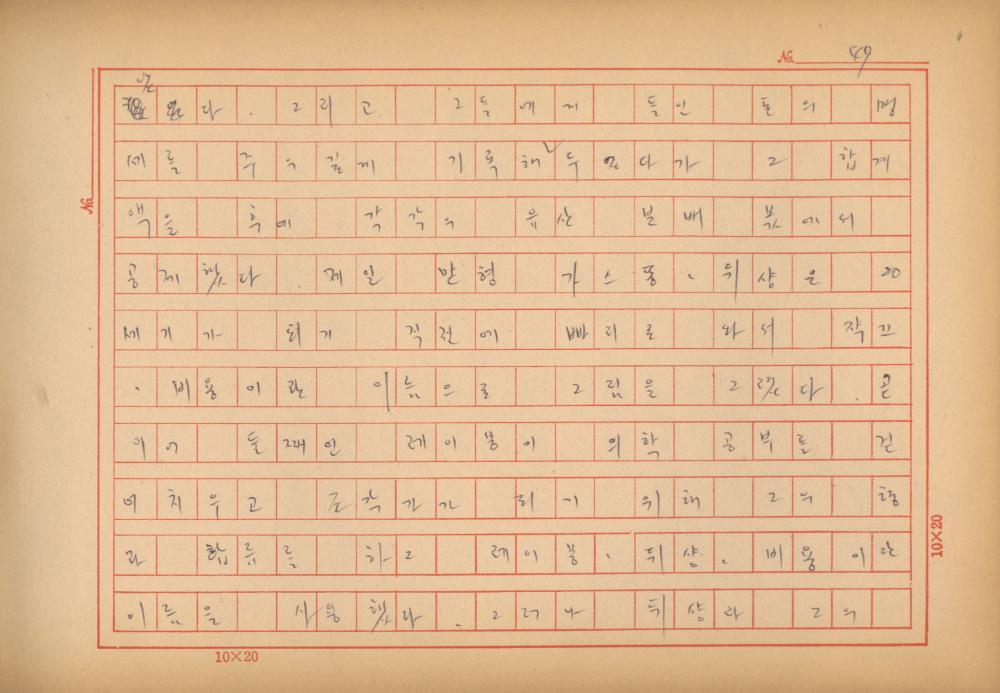 No. 49
었다. 그리고 그들에게 들인 돈의 명
세를 주의깊게 기록해 두었다가 그 합계
액을 후에 각각의 유산 분배 몫에서
공제했다. 제일 맏형 가스퐁·뒤샹은 20
세기가 되기 직전에 빠리로 와서 작끄
·비용이란 이름으로 그림을 그렸다. 곧
이어 둘째인 레이몽이 의학 공부를 걷
어치우고 조각가가 되기 위해 그의 형
과 합류를 하고 레이몽·뒤샹·비용이란
이름을 사용했다. 그러나 뒤샹과 그의
No.
10×20
10×20